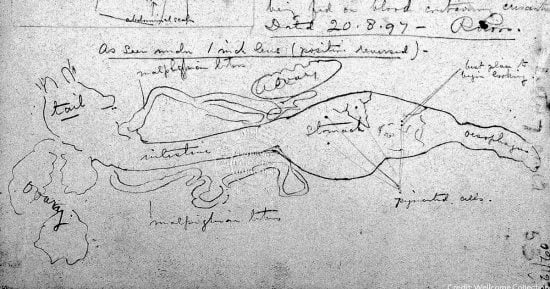 abdominal scales
being fed on blood containing crescents
Dated 20.8.97 — R. Ross.
As seen under 1 inch lens (position reversed) —
malpighian tubes
ovary
best place to
begin looking
tail
stomach
oesophagus
intestine
ovary
malpighian tubes
pigmented cells.
Credit: Wellcome Collection